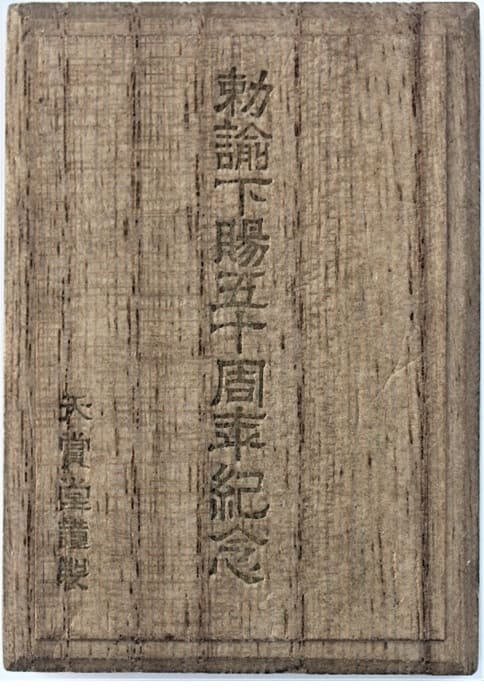 勅諭下賜五十周年紀念
天賞堂謹製